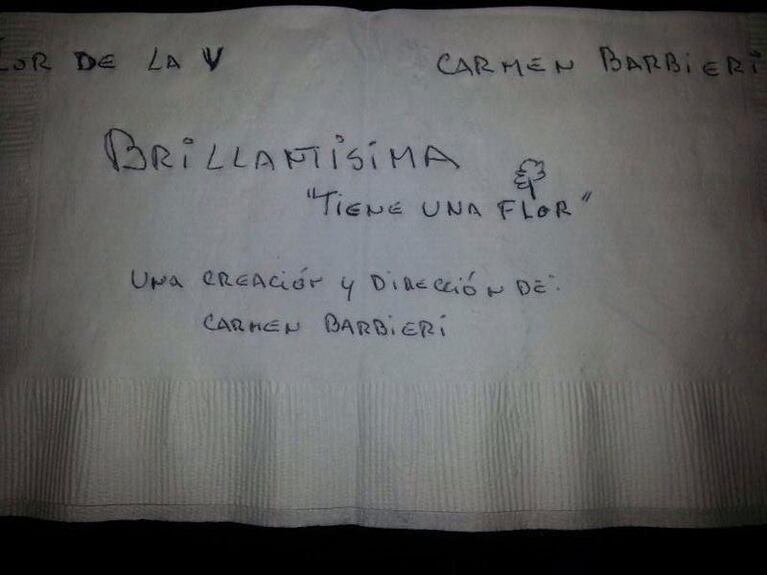 LOR DE LA V CARMEN BARBIERI
BRILLANTISIMA
"TIENE UNA FLOR"
UNA CREACIÓN Y DIRECCIÓN DE:
CARMEN BARBIERI